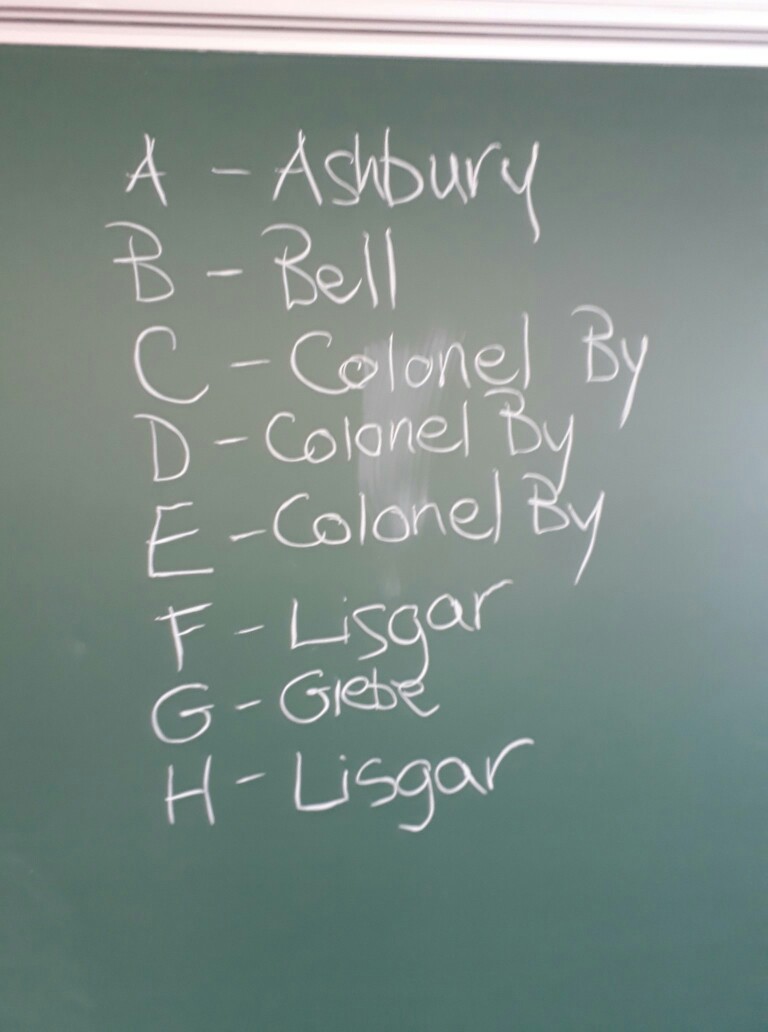 A - Ashbury
B - Bell
C - Colonel By
D - Colonel By
E - Colonel By
F - Lisgar
G - Glebe
H - Lisgar